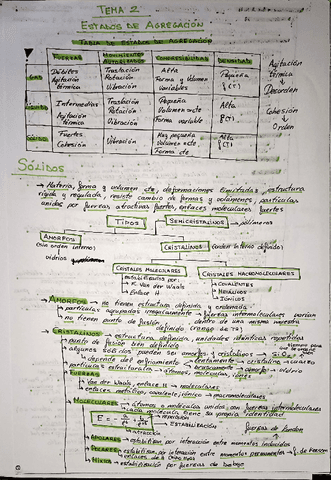 TEMA 2
ESTADOS DE AGREGACIÓN
TABLA DE ESTADOS DE AGREGACIÓN
FUERZAS MOVIMIENTOS AUTORIZADOS COMPRESIBILIDAD DENSIDAD
Gas Débiles Agitación térmica Traslación Rotación Vibración Alta Forma y Volumen variables Pequeña f(T)
Líquido Intermedias Agitación térmica Traslación Rotación Vibración Pequeña Volumen cte Forma variable Alta f(T)
Sólido Fuertes Cohesión Vibración Muy pequeña Volumen cte Forma cte Alta f(T)
Agitación
térmica
↓
Desorden
Cohesión
↓
Orden
SÓLIDOS
→ Materia, forma y volumen cte, deformaciones limitadas, estructura
rígida y regulada, resiste cambio de formas y volúmenes, partículas
unidas por fuerzas atractivas fuertes, enlaces moleculares fuertes
TIPOS
SEMICRISTALINOS
→ polímeros
AMORFOS
(sin orden interno)
vidrios
CRISTALINOS (orden interno definido)
CRISTALES MOLECULARES
CRISTALES MACROMOLECULARES
estabilizados por:
→ F. Van der Waals
→ Puente H
→ COVALENTES
→ METÁLICOS
→ IÓNICOS
→ AMORFOS → no tienen estructura definida y ordenada
→ partículas agrupadas irregularmente → fuerzas intermoleculares varían
→ no tienen punto de fusión definido (rango de Tª)
dentro de una misma muestra
→ CRISTALINOS
→ estructura definida, unidades idénticas repetidas
→ punto de fusión bien definido
→ algunos sólidos pueden ser amorfos y cristalinos → SiO₂
→ depende del enfriamiento
→ lentamente → cristalino → cuarzo
→ amorfo → vidrio
→ partículas estructurales → átomos, moléculas, iones
→ FUERZAS
→ Van der Waals, enlace H → moleculares
→ enlaces metálico, covalente, iónico → macromoleculares
→ MOLECULARES → átomos o moléculas unidos con fuerzas intermoleculares
→ cada molécula tiene su propia identidad
E =
repulsión
→ ESTABILIZACIÓN
atracción
fuerzas de London
→ APOLARES → estabilizan por interacción entre momentos inducidos
→ POLARES → estabilizan por interacción entre momentos permanentes → f. de Keesom
→ MIXTOS → estabilización por fuerzas de Debye